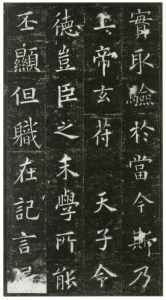 實取驗於當今斯乃
上帝玄符 天子令
德豈臣之末學所能
丕顯但職在記言